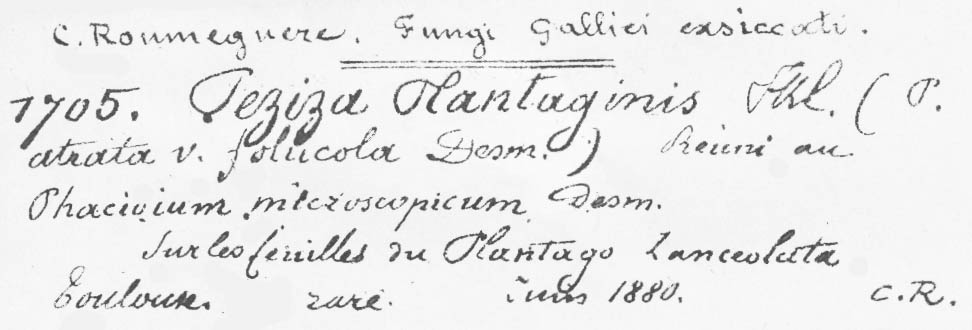 C. Roumeguere. Fungi Gallici exsiccati.
1705. Peziza Plantaginis Fkl. (P.
atrata v. foliicola Desm.) Réuni au
Phacidium microscopicum Desm.
Sur les feuilles du Plantago Lanceolata
Toulouse. rare. Juin 1880. C.R.